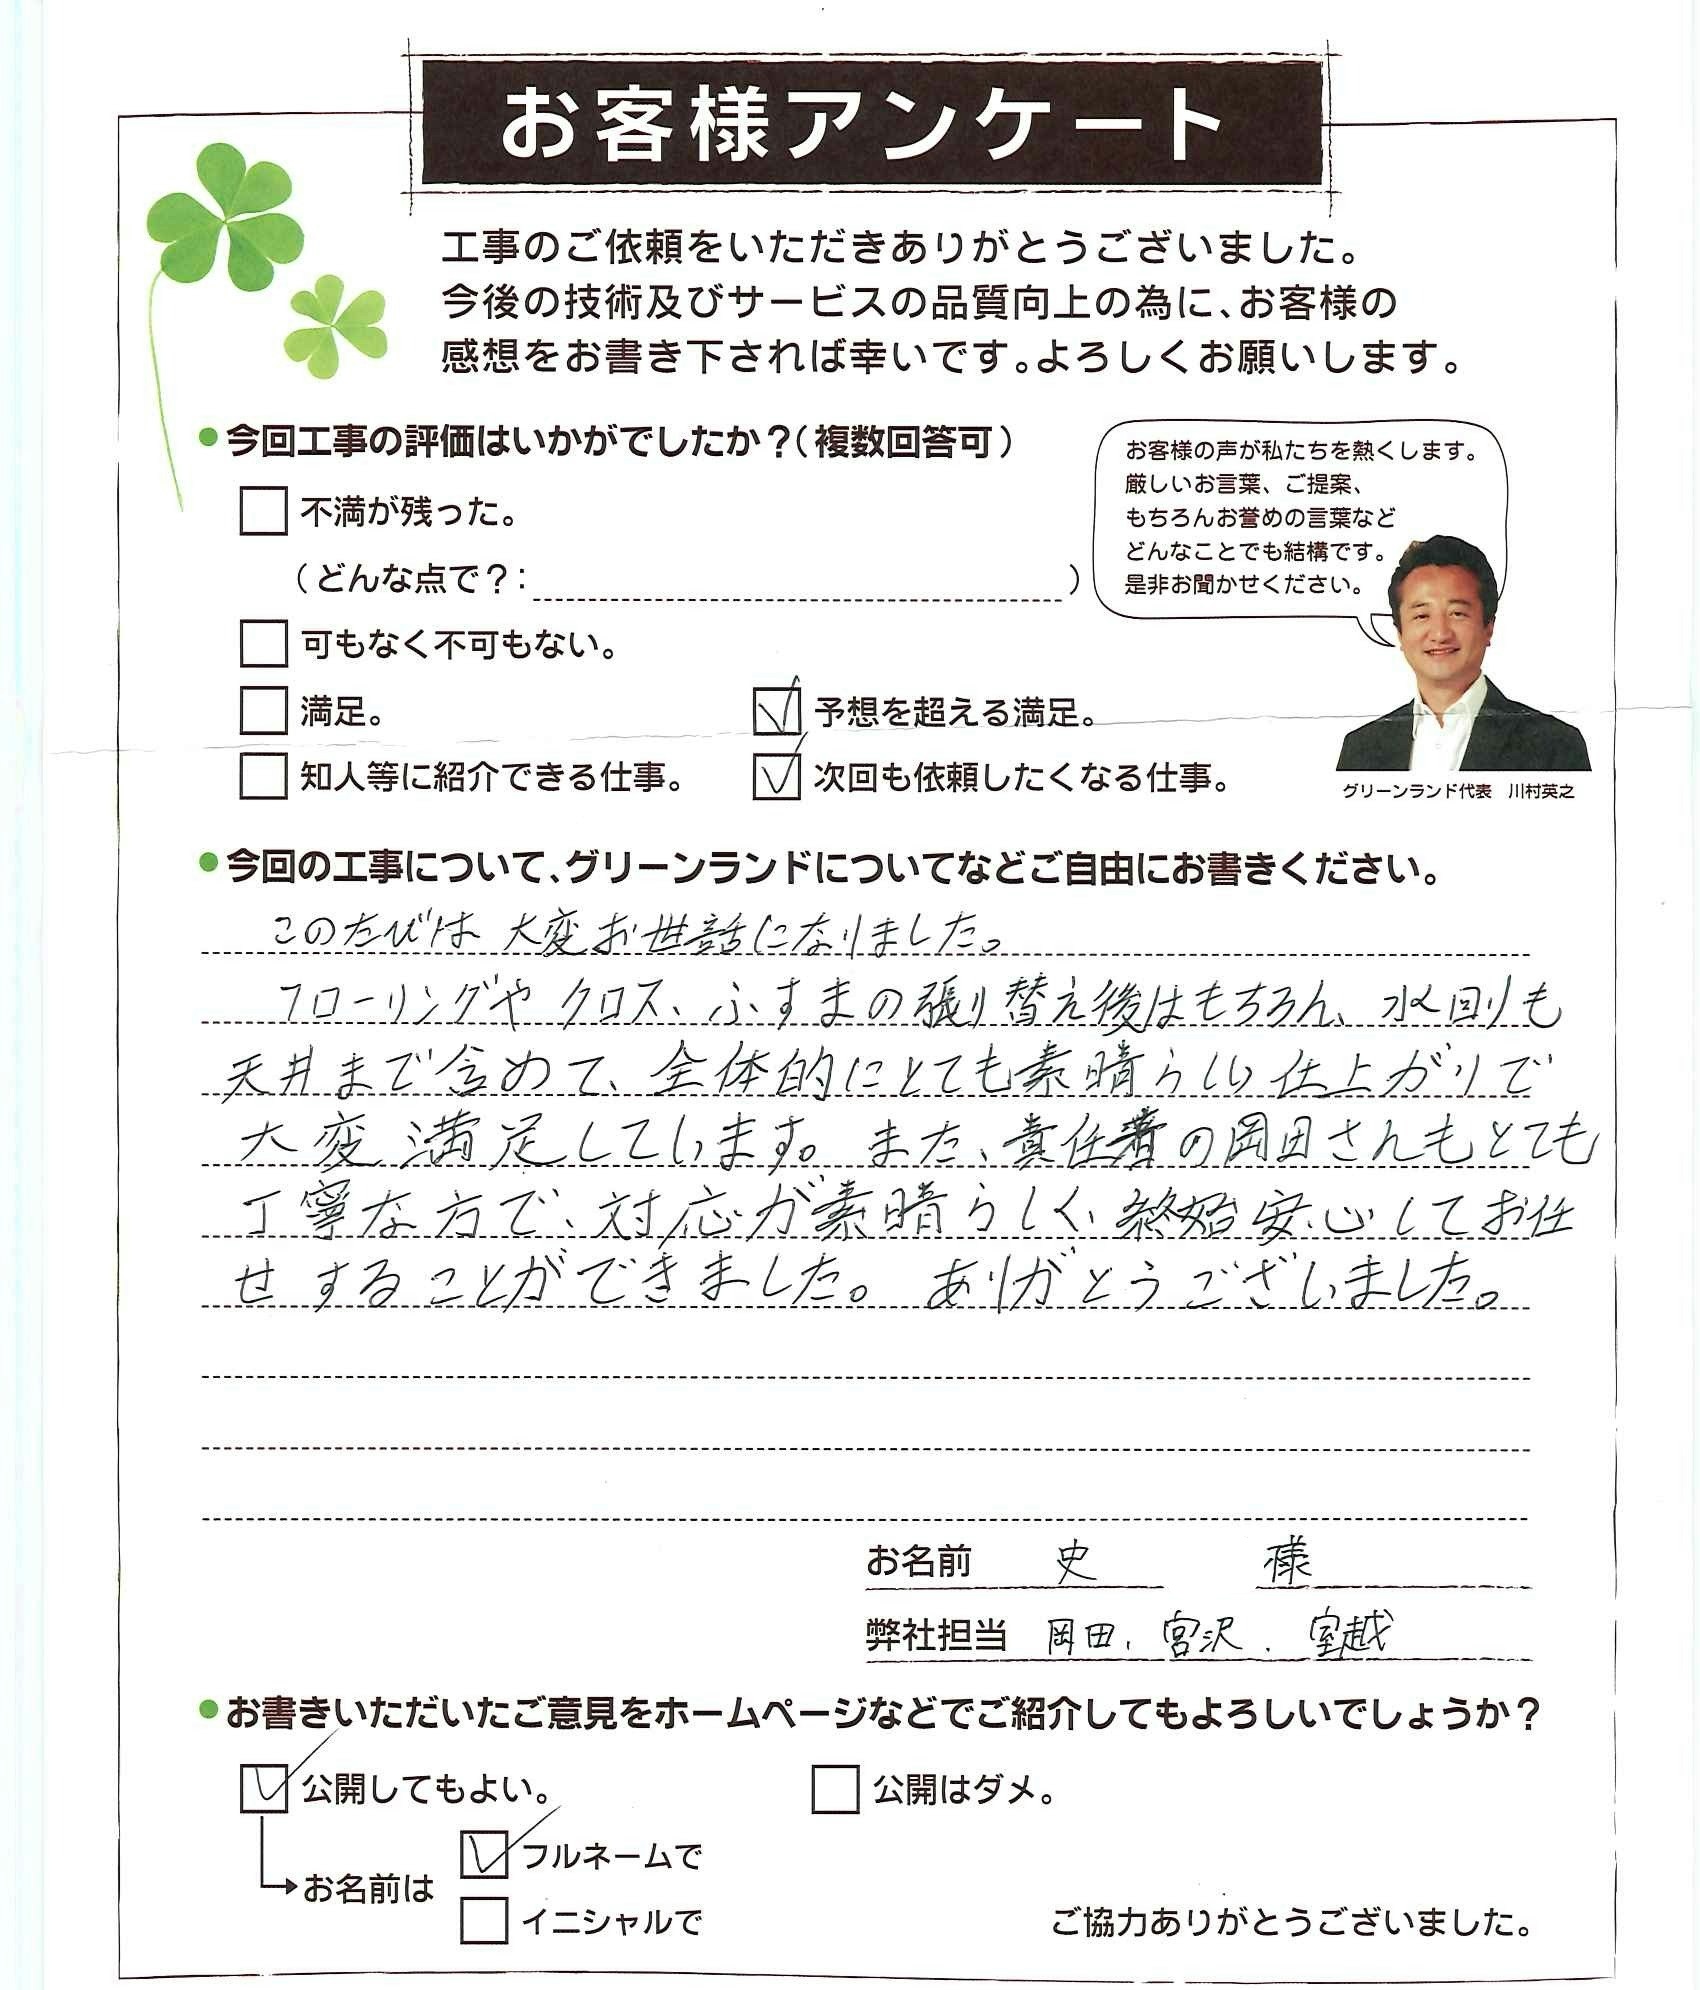 お客様アンケート
工事のご依頼をいただきありがとうございました。
今後の技術及びサービスの品質向上の為に、お客様の
感想をお書き下されば幸いです。よろしくお願いします。
●今回工事の評価はいかがでしたか？（複数回答可）
不満が残った。
（どんな点で？： ）
可もなく不可もない。
満足。
予想を超える満足。
知人等に紹介できる仕事。
次回も依頼したくなる仕事。
お客様の声が私たちを熱くします。
厳しいお言葉、ご提案、
もちろんお誉めの言葉など
どんなことでも結構です。
是非お聞かせください。
グリーンランド代表　川村英之
●今回の工事について、グリーンランドについてなどご自由にお書きください。
このたびは 大変お世話になりました。
フローリングや クロス、ふすまの張り替え後はもちろん、水回りも
天井まで含めて、全体的にとても素晴らしい仕上がりで
大変満足しています。また、責任者の岡田さんもとても
丁寧な方で、対応が素晴らしく、終始安心してお任
せすることができました。ありがとうございました。
お名前 史 様
弊社担当 岡田、宮沢、室越
●お書きいただいたご意見をホームページなどでご紹介してもよろしいでしょうか？
公開してもよい。
公開はダメ。
お名前は
フルネームで
イニシャルで
ご協力ありがとうございました。